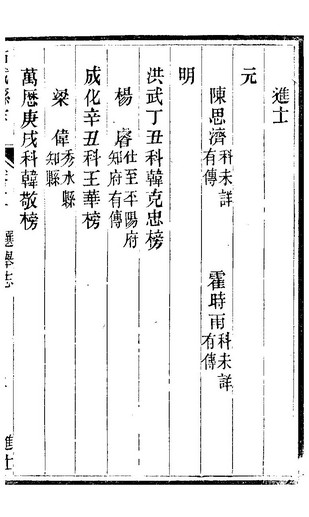 進士
元
陳思濟科未詳有傳 霍時雨科未詳有傳
明
洪武丁丑科韓克忠榜
楊睿仕至平陽府知府有傳
成化辛丑科王華榜
梁偉秀水縣知縣
萬厯庚戌科韓敬榜
選舉志
進士